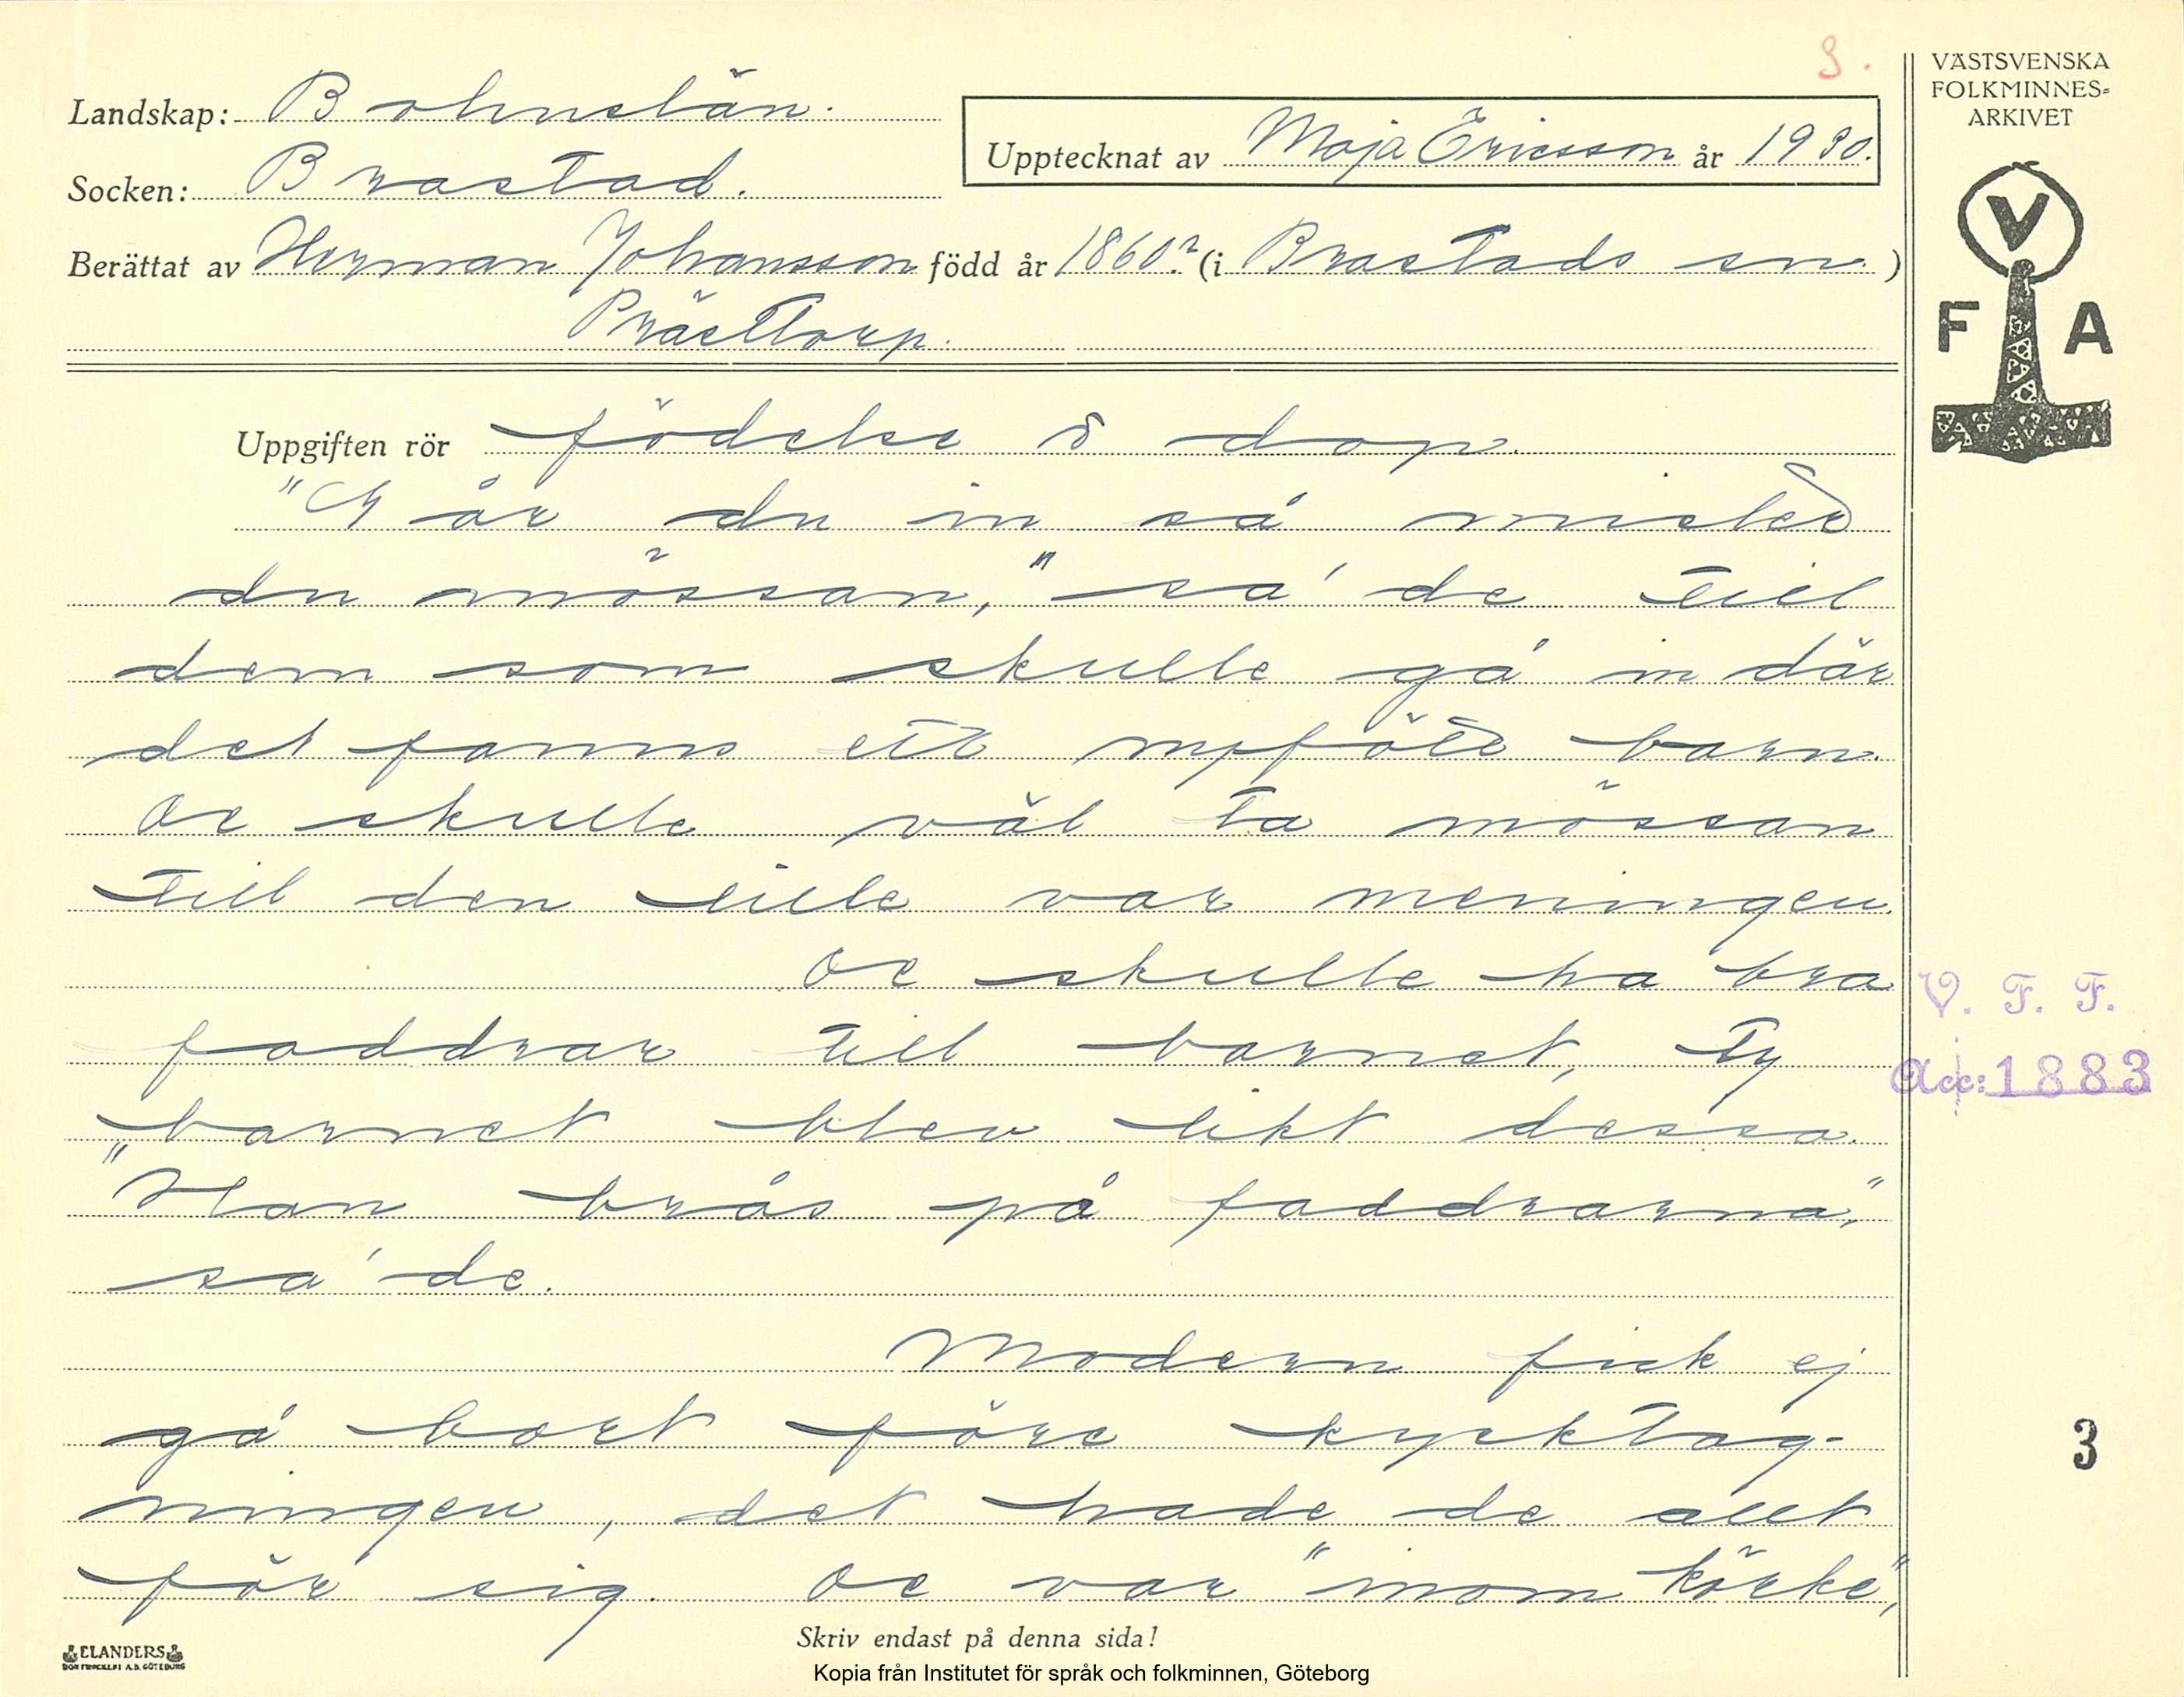 3.
VÄSTSVENSKA
FOLKMINNES-
ARKIVET
Landskap: Bohuslän.
Upptecknat av Maja Ericsson år 1930.
Socken: Brastad.
Berättat av Herman Johansson född år 1860? (i Brastads sn.)
Prästtorp.
V
F A
Uppgiften rör födelse o dop.
"Går du in så mister
du mössan," sa' de till
dem som skulle gå in där
det fanns ett nyfött barn.
De skulle väl ta mössan
till den lille var meningen.
De skulle ha bra
faddrar till barnet, ty
barnet blev likt dessa.
"Han brås på faddrarna,"
sa' de.
Modern fick ej
gå bort före kyrktag-
ningen, det hade de allt
för sig. De var "inom körke",
V. F. F.
Acc: 1883
3
Skriv endast på denna sida!
ELANDERS
BOKTRYCKERI A.B. GÖTEBORG
Kopia från Institutet för språk och folkminnen, Göteborg